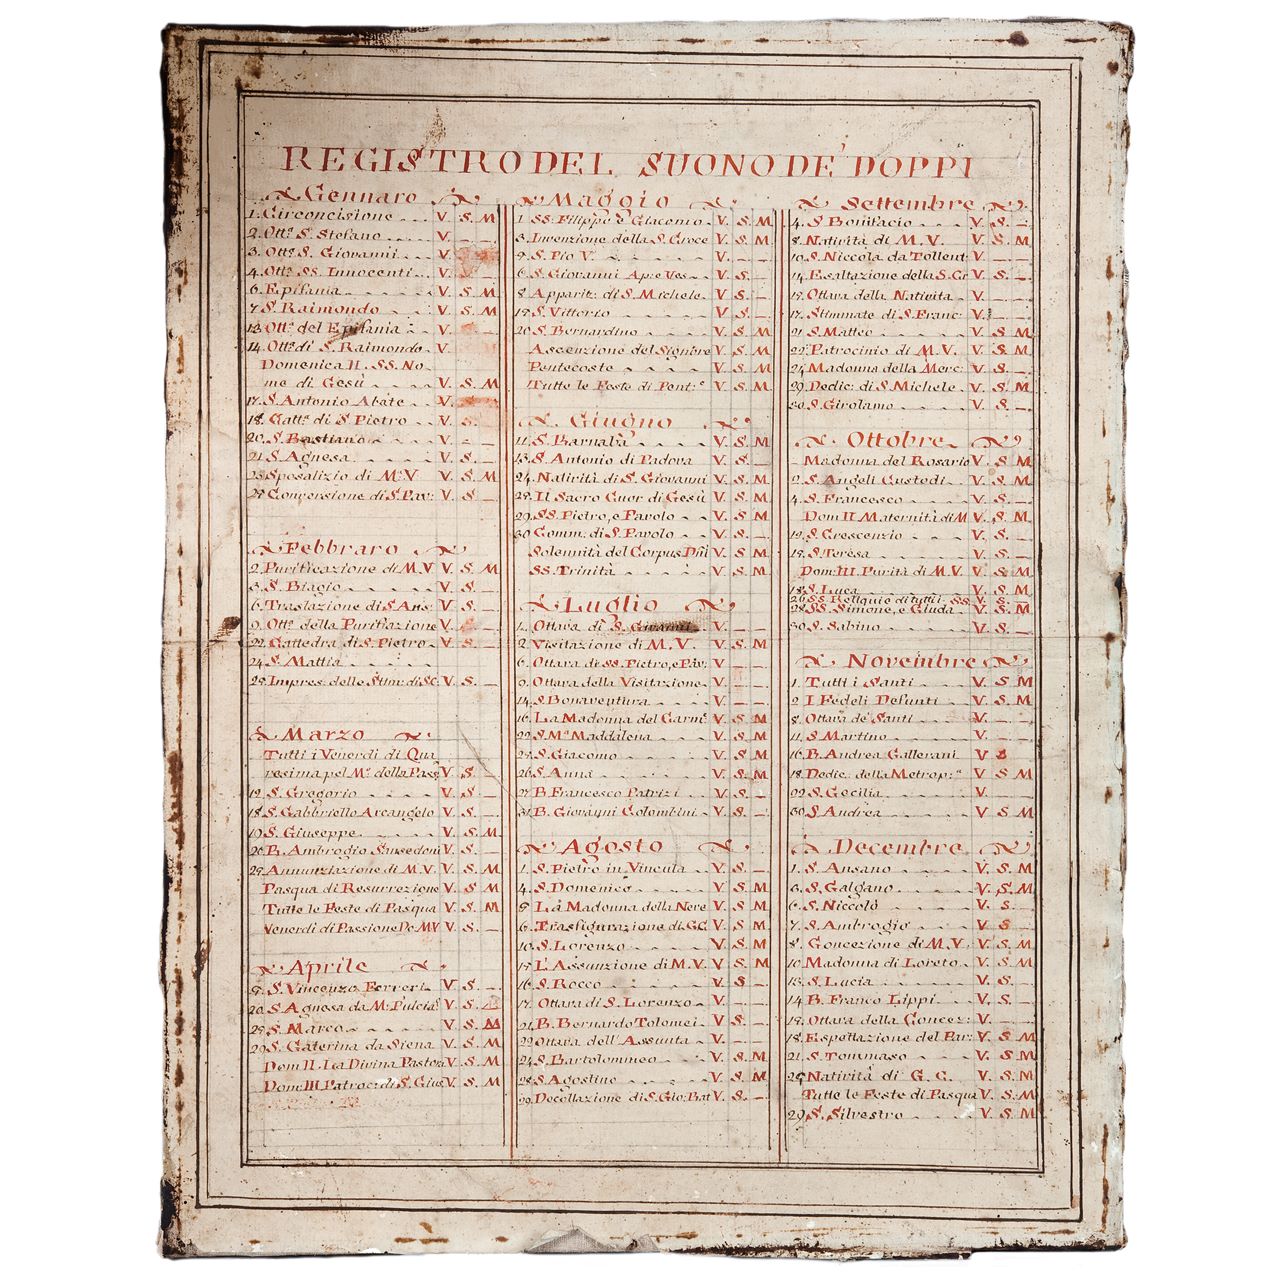 REGISTRO DEL SUONO DE' DOPPI
Gennaro
1. Circoncisione V. S. M
2. Ott.a S. Stefano V.
3. Ott.a S. Giovanni V.
4. Ott.a SS. Innocenti V.
6. Epifania V. S. M
7. S. Raimondo V. S. M
13. Ott.a del Epifania V.
14. Ott.a di S. Raimondo V.
Domenica II. SS. No
me di Gesù V. S. M
17. S. Antonio Abate V.
18. Catt.a di S. Pietro V. S.
20. S. Bastiano V.
21. S. Agnesa V. S.
23. Sposalizio di M. V V. S. M
25. Conversione di S. Pav: V. S
Febbraro
2. Purificazione di M. V V. S. M
3. S. Biagio V. S.
6. Traslazione di S. Ans: V. S
9. Ott.a della Purifiazione V.
22. Cattedra di S. Pietro V. S
24. S. Mattia
28. Impres. delle Stim: di S C V. S.
Marzo
Tutti i Venerdi di Qua
resima pel M.o della Pass: V. S.
12. S. Gregorio V. S.
18. S. Gabbriello Arcangelo V. S.
19. S. Giuseppe V. S. M
20. B. Ambrogio Sansedoni V. S.
25. Annunziazione di M. V. V. S. M
Pasqua di Resurrezione V. S M
Tutte le Feste di Pasqua V. S. M
Venerdi di Passione Do. M V V. S.
Aprile
5. S. Vincenzo Ferreri V S
20. S. Agnesa da M. Pulcia.o V. S.
25. S. Marco V. S. M
29. S. Caterina da Siena V. S. M
Dom. II La Divina Pastora V. S. M
Dom: III Patroc: di S. Gius V. S. M
Maggio
1 SS. Filippo e Giacomo V. S. M
3. Invenzione della S. Croce V. S. M
5. S. Pio V. V.
6. S. Giovanni Ap: e Ves V. S.
8. Apparit: di S. Michele V S.
15. S. Vittorio V S.
20. S. Bernardino V. S. M
Ascenzione del Signore V. S. M
Pentecoste V. S. M
Tutte le Feste di Pent.e V. S. M
Giugno
11. S. Barnaba V. S. M
13. S. Antonio di Padova V. S
24. Natività di S. Giovanni V. S. M
25. Il Sacro Cuor di Gesù V. S. M
29. SS. Pietro, e Pavolo V. S. M
30 Comm. di S. Pavolo V. S.
Solennità del Corpus Dni V S M
SS. Trinità V. S. M
Luglio
1. Ottava di S. V.
2 Visitazione di M. V. V. S. M
6. Ottava di SS. Pietro, e Pav: V
9. Ottava della Visitazione V.
14. S. Bonaventura V.
16. La Madonna del Carm.e V. S. M
22. S. M.a Maddalena V. S. M
25. S. Giacomo V. S. M
26. S. Anna V. S. M
27 B. Francesco Patrizi V. S.
31. B. Giovanni Colombini V. S.
Agosto
1. S. Pietro in Vincula V. S. M
4. S. Domenico V. S. M
5. La Madonna della Neve V. S. M
6. Trasfigurazione di G. C. V. S. M
10. S. Lorenzo V. S. M
15. L'Assunzione di M. V. V. S. M
16. S. Rocco V. S
17. Ottava di S. Lorenzo V.
21. B. Bernardo Tolomei V. S.
22 Ottava dell'Assunta V.
24. S. Bartolommeo V. S. M
28. S. Agostino V. S. M
29. Decollazione di S. Gio: Bat V. S.
Settembre
4. S. Bonifacio V. S.
8. Natività di M. V. V. S M
10. S. Niccola da Tollent V.
14. Esaltazione della S. Cr V. S.
15. Ottava della Natività V.
17. Stimmate di S. Franc: V.
21. S. Matteo V. S. M
22. Patrocinio di M. V. V. S. M
24. Madonna della Merc: V. S.
29. Dedic: di S. Michele V. S. M
30. S. Girolamo V. S.
Ottobre
Madonna del Rosario V. S. M
2. S. Angeli Custodi V. S. M
4. S. Francesco V. S.
Dom II Maternità di M V. S. M
12. S. Crescenzio V. S.
15. S. Teresa V. S.
Dom: III. Purità di M. V. V. S. M
18. S. Luca V. S. M
26 SS. Reliquie di tutti i SS V. S.
28. SS. Simone, e Giuda V. S. M
30. S. Sabino V. S.
Novembre
1. Tutti i Santi V. S M
2 I Fedeli Defunti V. S. M
8. Ottava de' Santi V.
11. S. Martino V.
16. B. Andrea Gallerani V S
18. Dedic: della Metrop:a V S M
22. S. Cecilia V.
30. S. Andrea V S M
Decembre
1. S. Ansano V. S. M
3. S. Galgano V. S. M
6. S. Niccolò V. S.
7. S. Ambrogio V S
8. Concezione di M. V. V. S. M
10. Madonna di Loreto V. S. M
13. S. Lucia V. S.
14 B. Franco Lippi V. S.
15. Ottava della Concez: V.
18. Espettazione del Par: V. S. M
21. S. Tommaso V. S. M
25 Natività di G. C. V. S. M
Tutte le Feste di Pasqua V. S. M
29. S. Silvestro V. S. M